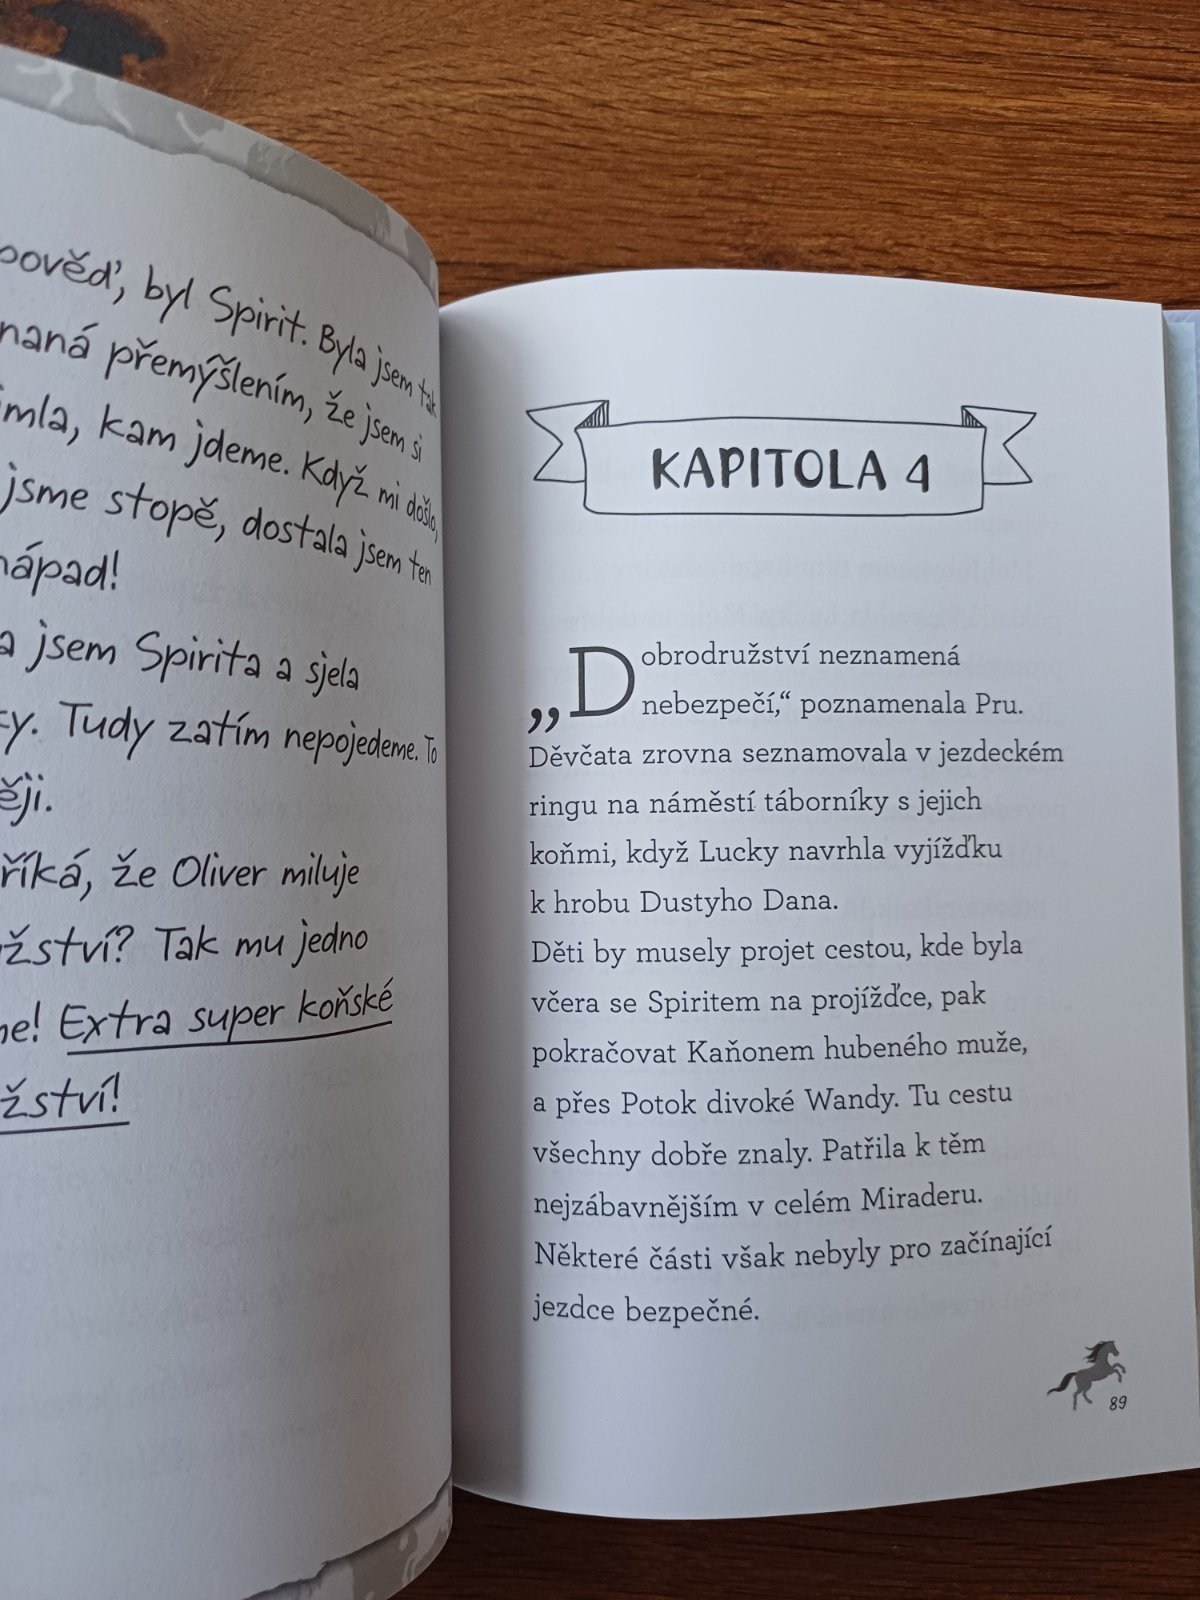 byl Spirit. Byla jsem tak
přemýšlením, že jsem si
kam jdeme. Když mi došlo,
jsme stopě, dostala jsem ten
nápad!
jsem Spirita a sjela
Tudy zatím nepojedeme. To
říká, že Oliver miluje
Tak mu jedno
Extra super koňské
KAPITOLA 4
„Dobrodružství neznamená
nebezpečí,“ poznamenala Pru.
Děvčata zrovna seznamovala v jezdeckém
ringu na náměstí táborníky s jejich
koňmi, když Lucky navrhla vyjížďku
k hrobu Dustyho Dana.
Děti by musely projet cestou, kde byla
včera se Spiritem na projížďce, pak
pokračovat Kaňonem hubeného muže,
a přes Potok divoké Wandy. Tu cestu
všechny dobře znaly. Patřila k těm
nejzábavnějším v celém Miraderu.
Některé části však nebyly pro začínající
jezdce bezpečné.
89